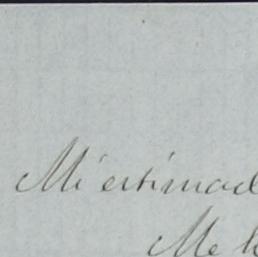 Mi estimad
Me h